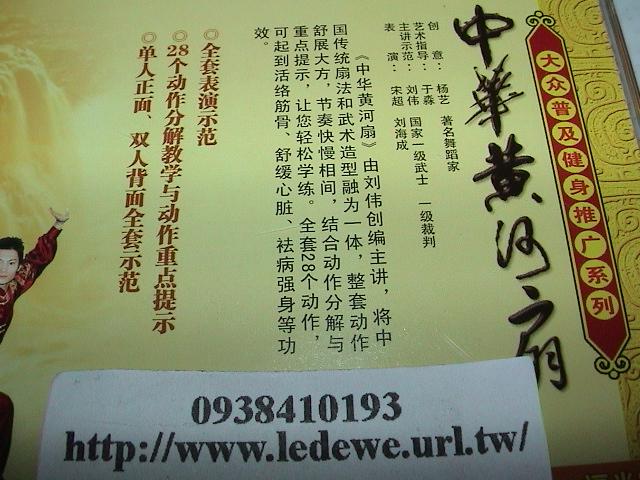 大众普及健身推广系列
中华黄河扇
创意：杨艺 著名舞蹈家
艺术指导：于淼
主讲示范：刘伟 国家一级武士 一级裁判
表演：宋超 刘海成
《中华黄河扇》由刘伟创编主讲，将中
国传统扇法和武术造型融为一体，整套动作
舒展大方，节奏快慢相间，结合动作分解与
重点提示，让您轻松学练。全套28个动作，
可起到活络筋骨、舒缓心脏、祛病强身等功
效。
◎全套表演示范
◎28个动作分解教学与动作重点提示
◎单人正面、双人背面全套示范
0938410193
http://www.ledewe.url.tw/